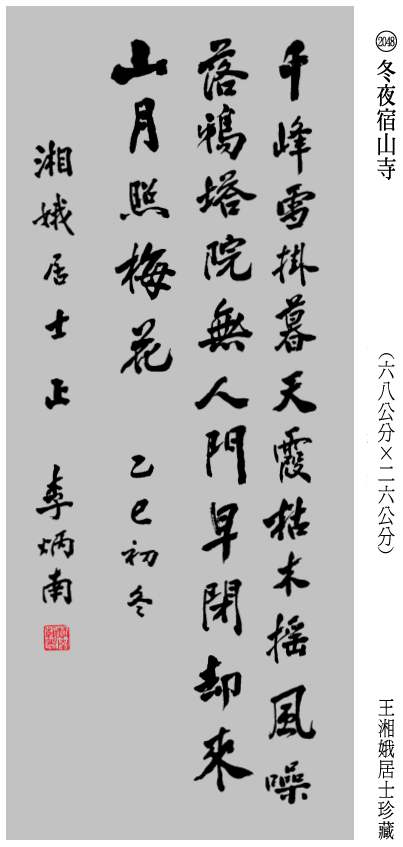 2048
冬夜宿山寺
(六八公分×二六公分)
王湘娥居士珍藏
千峰雪掛暮天霞枯木搖風噪
落鴉塔院無人門早閉却來
山月照梅花　乙巳初冬
湘娥居士正　李炳南